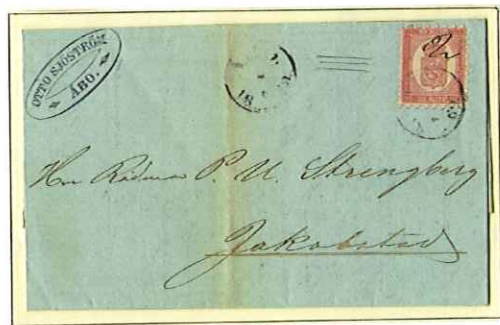 OTTO SJÖSTRÖM
ÅBO.
Herr Rådman P. U. Strengberg
Jakobstad